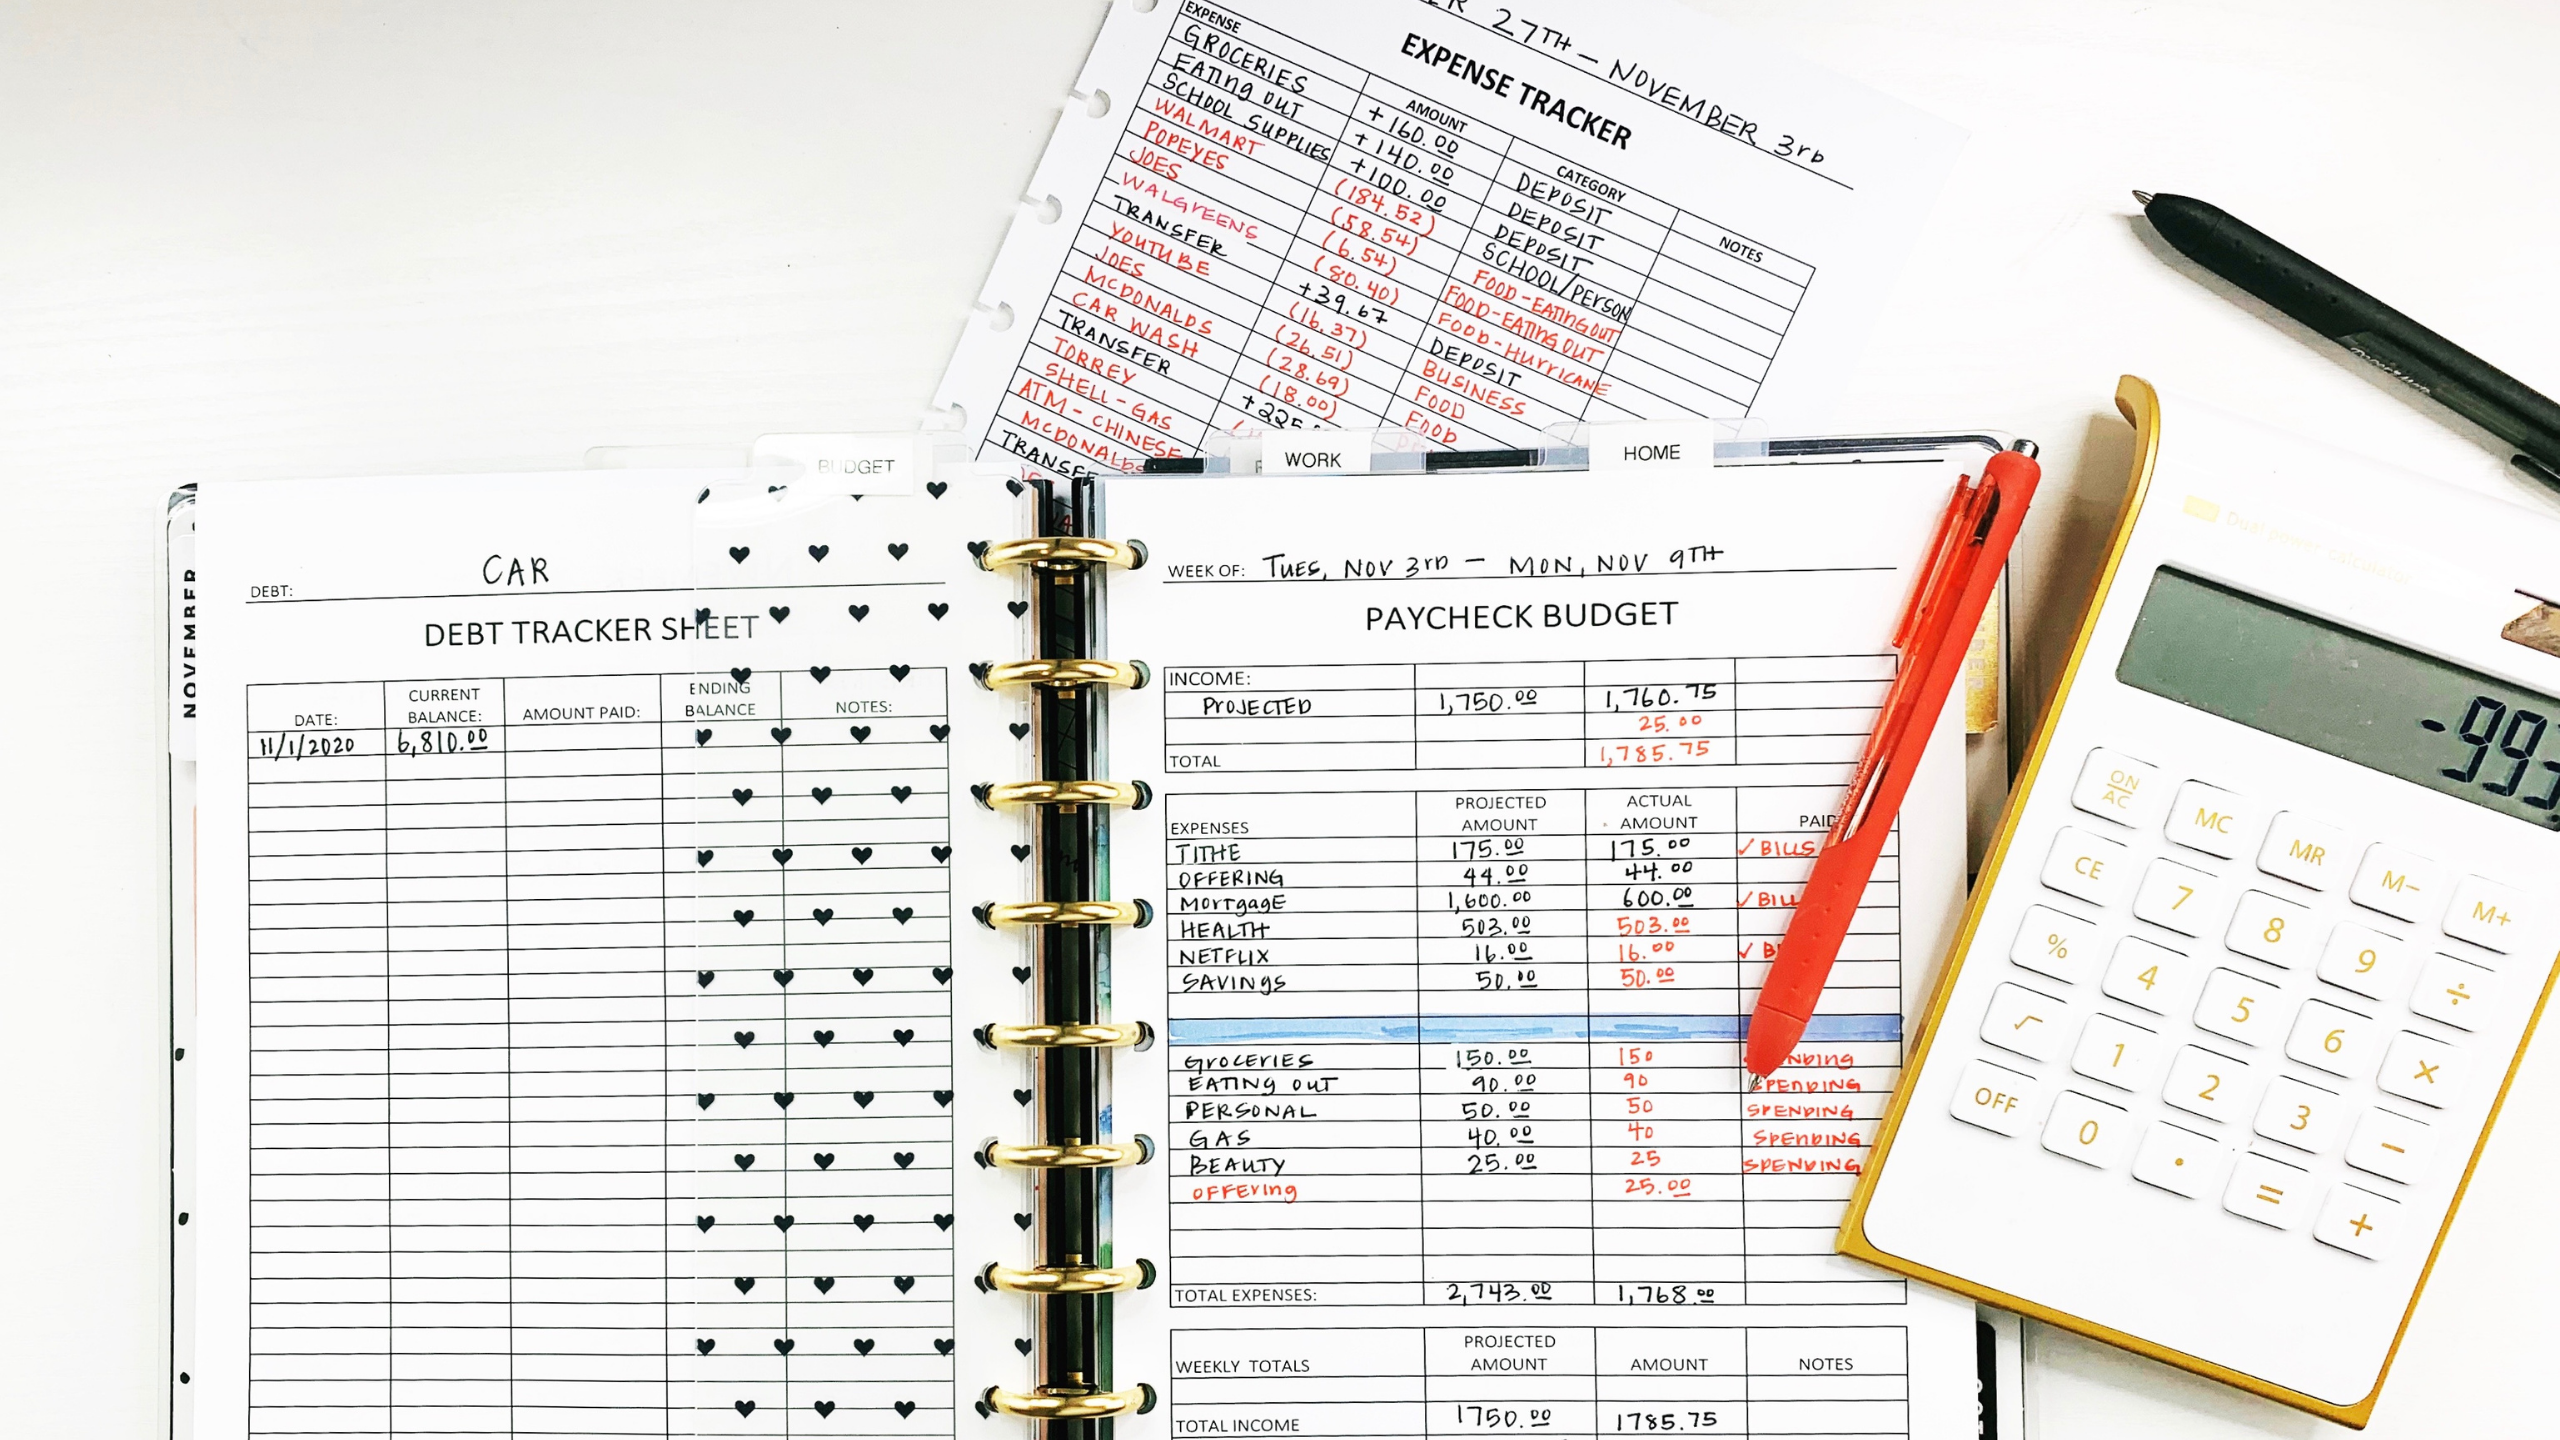 27TH - NOVEMBER 3rd
EXPENSE TRACKER
EXPENSE AMOUNT CATEGORY NOTES
GROCERIES +160.00 DEPOSIT
EATING OUT +140.00 DEPOSIT
SCHOOL SUPPLIES +100.00 DEPOSIT
WALMART (184.52) SCHOOL/PERSON
POPEYES (58.54) FOOD-EATING OUT
JOES (6.54) FOOD-EATING OUT
WALGREENS (80.40) FOOD-HURRICANE
TRANSFER +39.67 DEPOSIT
YOUTUBE (16.37) BUSINESS
JOES (26.51) FOOD
MCDONALDS (28.69) FOOD
CAR WASH (18.00)
TRANSFER +225.
TORREY
SHELL-GAS
ATM-CHINESE
MCDONALDS
BUDGET
WORK
HOME
NOVEMBER
DEBT: CAR
DEBT TRACKER SHEET
DATE: CURRENT BALANCE: AMOUNT PAID: ENDING BALANCE NOTES:
11/1/2020 6,810.00
WEEK OF: TUES, NOV 3rd - MON, NOV 9TH
PAYCHECK BUDGET
INCOME:
PROJECTED 1,750.00 1,760.75
25.00
TOTAL 1,785.75
EXPENSES PROJECTED AMOUNT ACTUAL AMOUNT PAID
TITHE 175.00 175.00 ✓ BILLS
OFFERING 44.00 44.00
MORTGAGE 1,600.00 600.00 ✓
HEALTH 503.00 503.00
NETFLIX 16.00 16.00 ✓
SAVINGS 50.00 50.00
GROCERIES 150.00 150
EATING OUT 90.00 90 SPENDING
PERSONAL 50.00 50 SPENDING
GAS 40.00 40 SPENDING
BEAUTY 25.00 25 SPENDING
OFFERING 25.00
TOTAL EXPENSES: 2,743.00 1,768.00
WEEKLY TOTALS PROJECTED AMOUNT AMOUNT NOTES
TOTAL INCOME 1750.00 1785.75
Dual power calculator
-993
ON/AC MC MR M- M+
CE 7 8 9 ÷
% 4 5 6 ×
√ 1 2 3 −
OFF 0 . = +